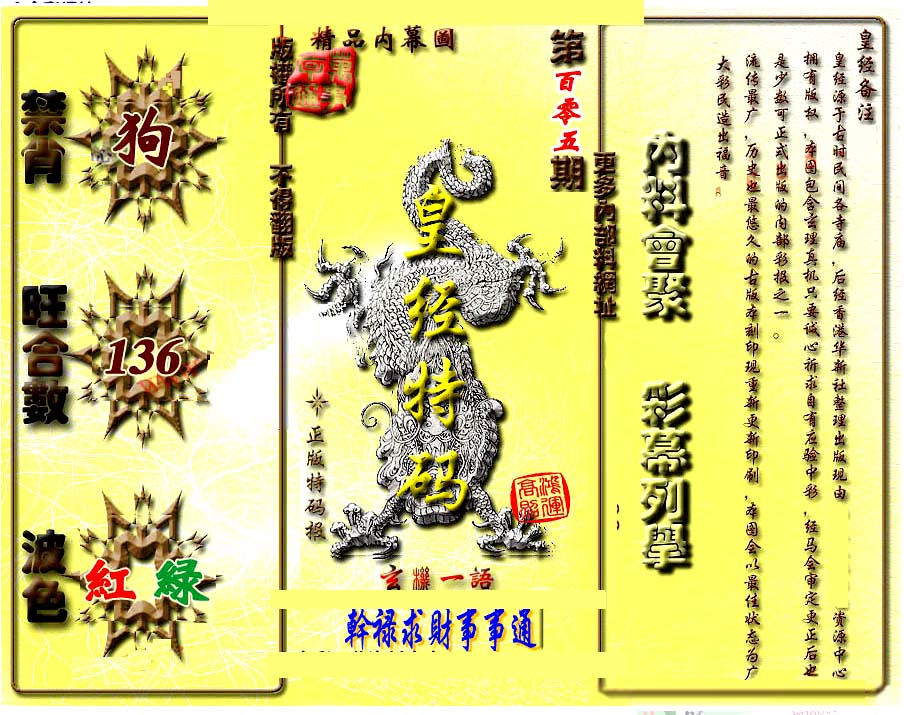 精品内幕圖
第百零五期
版權所有 不得翻版
更多內部料網址
禁肖
狗
旺合數
136
波色
紅 緑
皇经特码
正版特码报
鴻運
高照
玄機一語
幹禄求財事事通
内料會聚
彩幕列舉
皇经备注
皇经源于古时民间各寺庙，后经香港华新社整理出版现由 资源中心
拥有版权，本图包含玄理真机只要诚心祈求自有应验中彩，经马会审定更正后也
是少数可正式出版的内部彩报之一。
流传最广，历史也最悠久的古版本刻印现重新更新印刷，本图会以最佳状态为广
大彩民造出福音